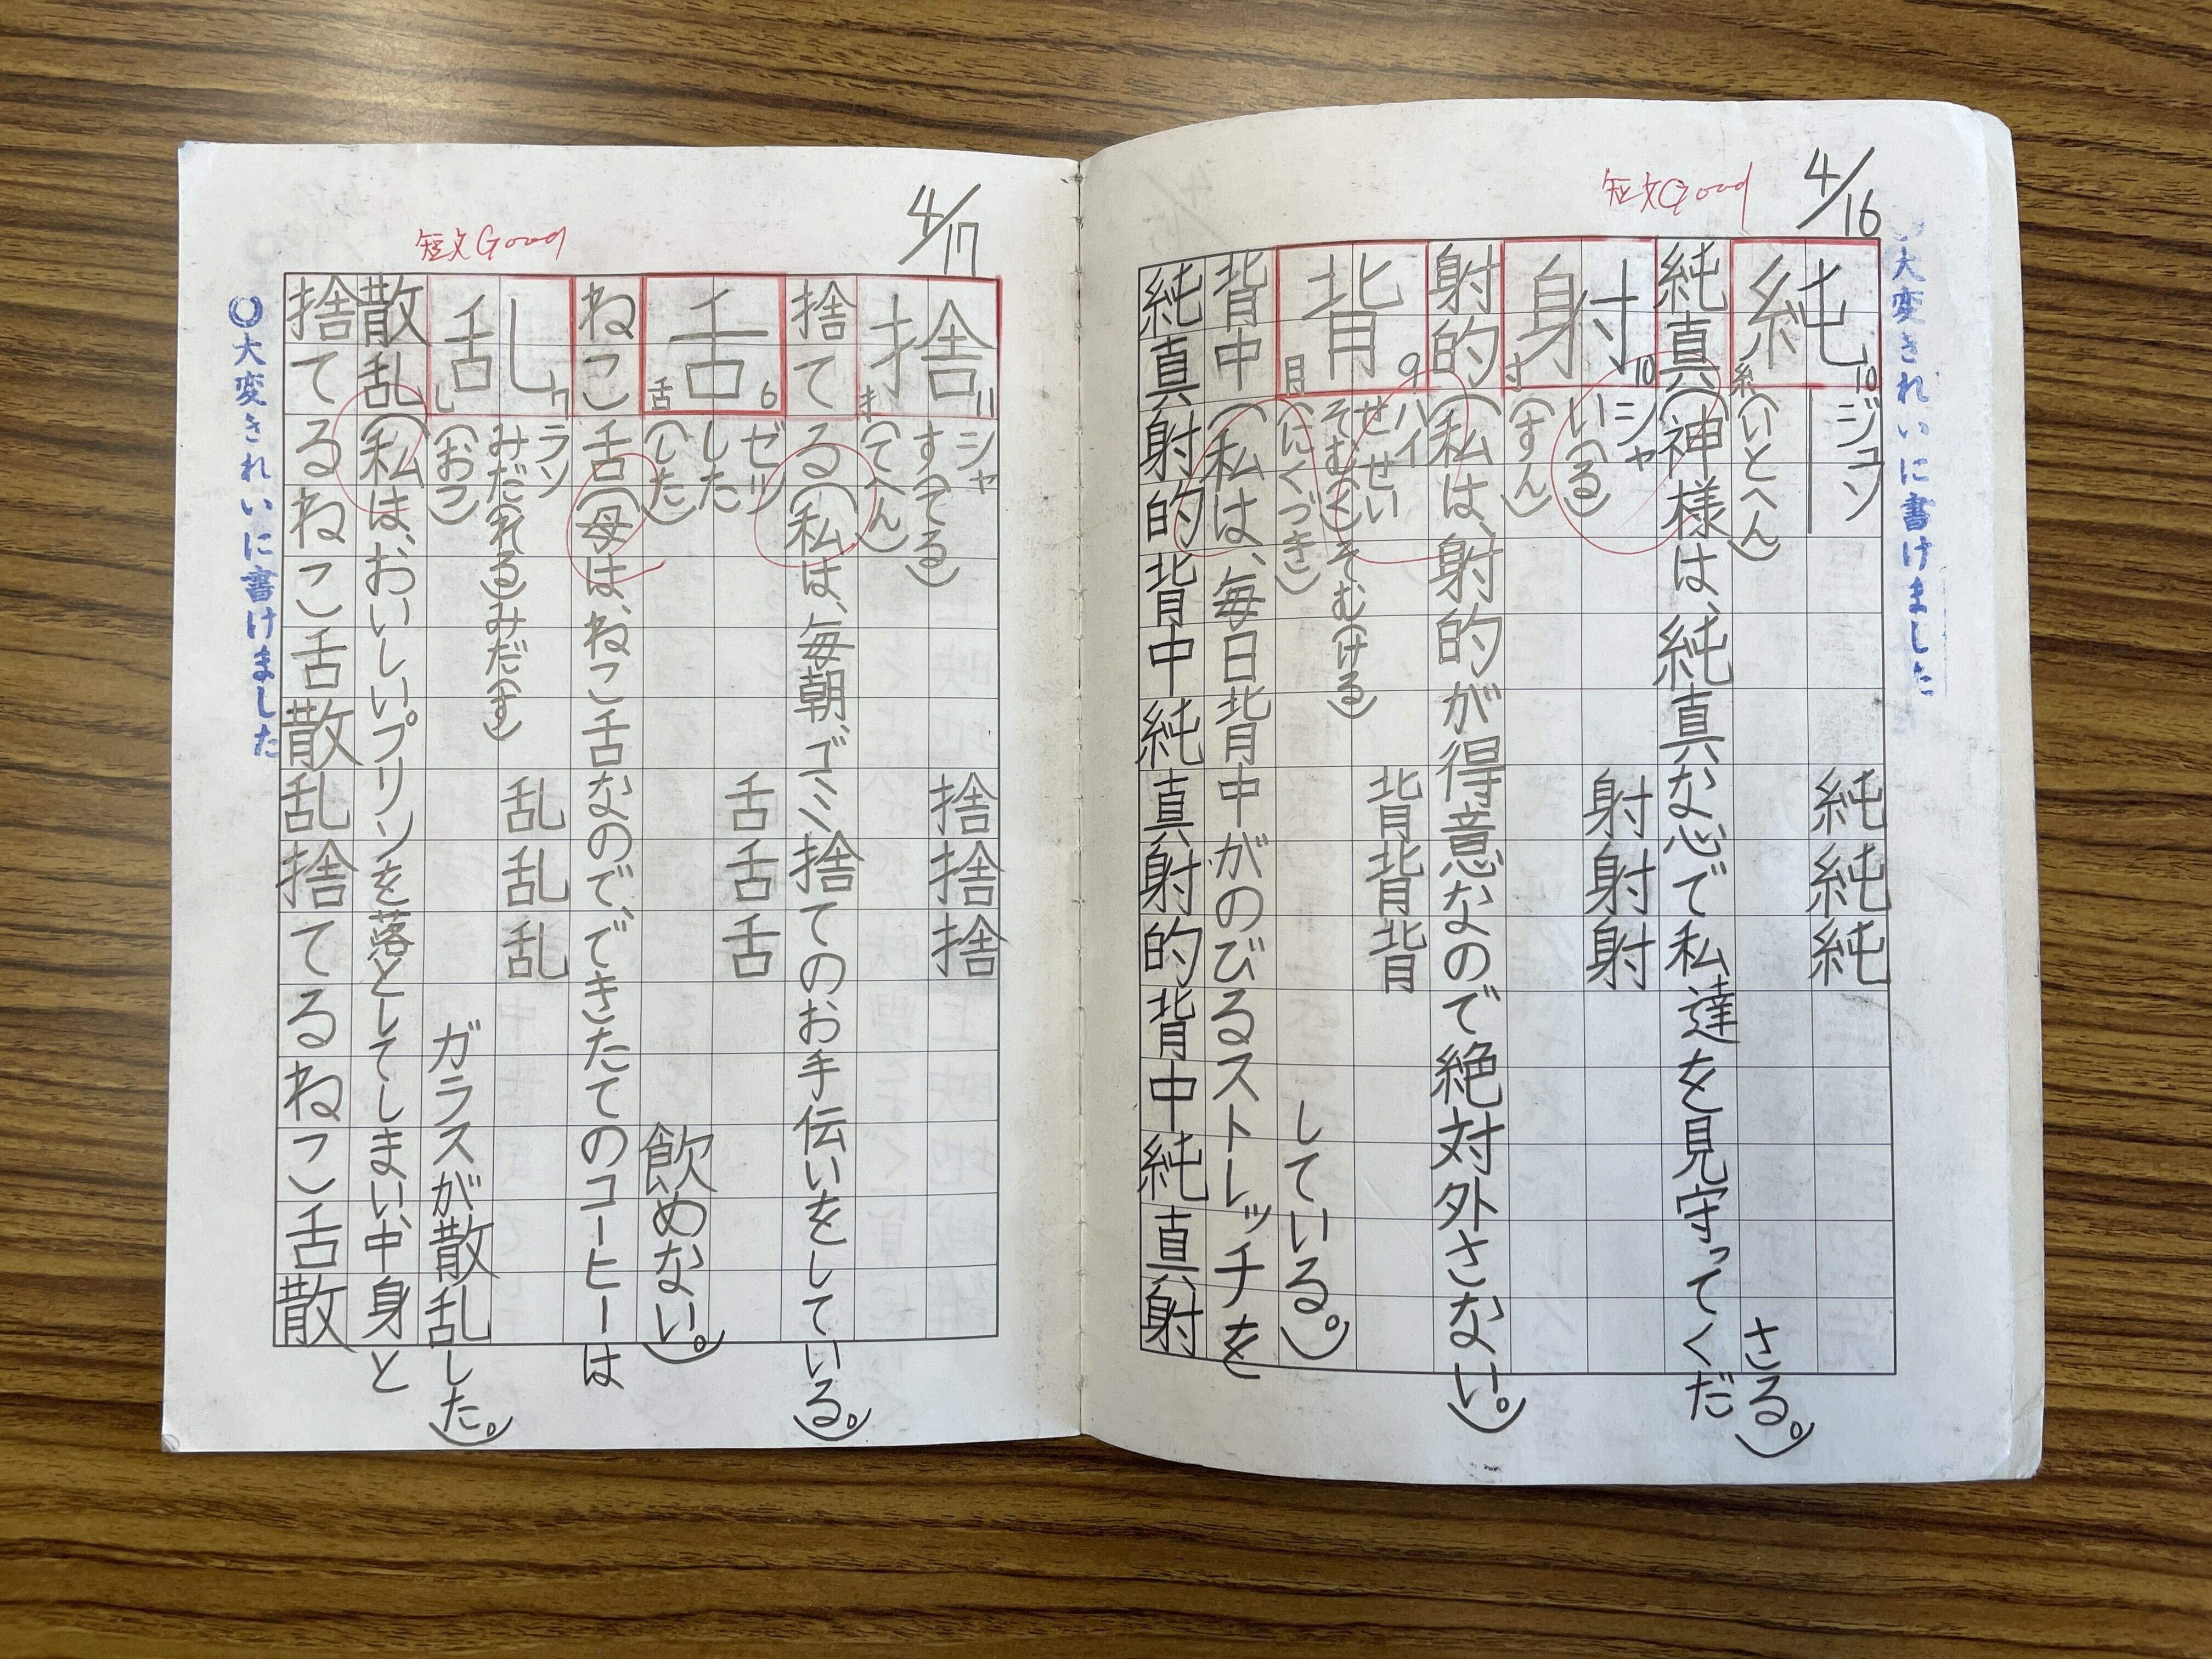 4/16
短文Good
大変きれいに書けました
純 10 糸
ジュン
純純純
(いとへん)
純真(神様は、純真な心で私達を見守ってくだ
さる。)
射 10 寸
シャ
い(る)
射射射
(すん)
射的(私は、射的が得意なので絶対外さない。)
背 9 月
ハイ
せ せい
そむ(く)そむ(ける)
背背背
(にくづき)
背中(私は、毎日背中がのびるストレッチを
している。)
純真射的背中純真射的背中純真射
4/17
短文Good
捨 11 扌
シャ
す(てる)
捨捨捨
(てへん)
捨てる(私は、毎朝、ゴミ捨てのお手伝いをしている。)
舌 6 舌
ゼツ
した
舌舌舌
(した)
ねこ舌(母は、ねこ舌なので、できたてのコーヒーは
飲めない。)
乱 7 乚
ラン
みだ(れる)みだ(す)
乱乱乱
(おつ)
散乱(私は、おいしいプリンを落としてしまい、中身と
ガラスが散乱した。)
捨てるねこ舌散乱捨てるねこ舌散
大変きれいに書けました